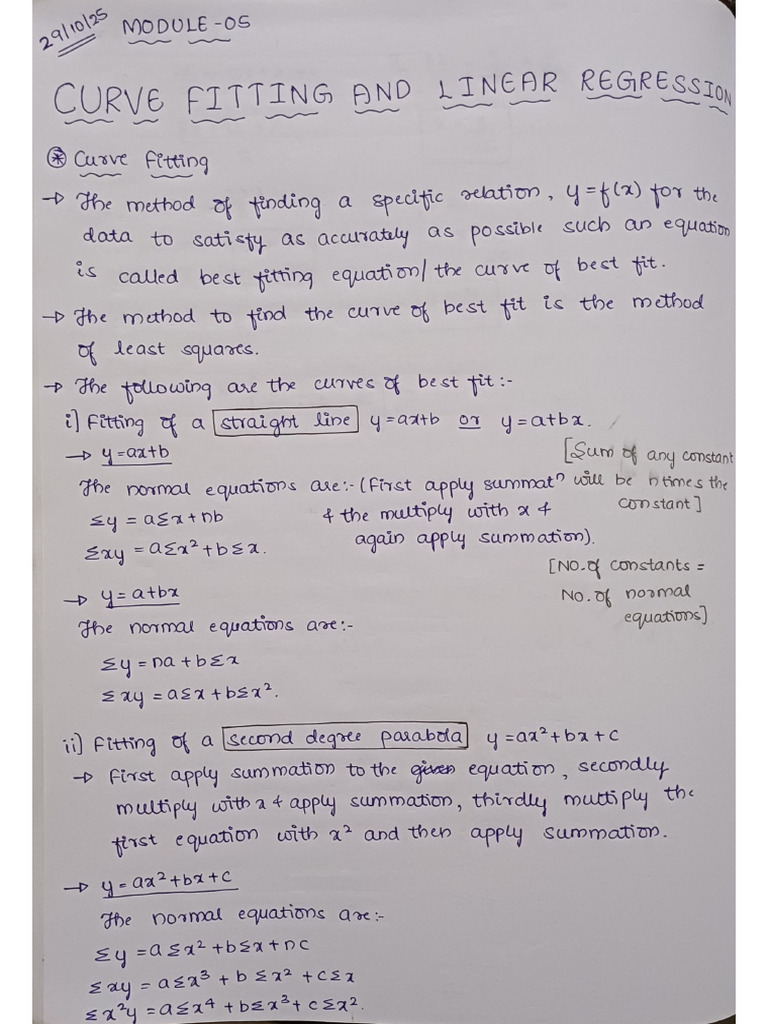 29/10/25 MODULE-05
CURVE FITTING AND LINEAR REGRESSION
* Curve Fitting
→ The method of finding a specific relation, y=f(x) for the
data to satisfy as accurately as possible such an equation
is called best fitting equation/ the curve of best fit.
→ The method to find the curve of best fit is the method
of least squares.
→ The following are the curves of best fit:-
i] Fitting of a straight line y=ax+b or y=a+bx.
→ y=ax+b
[Sum of any constant
will be n times the
constant]
The normal equations are:- (First apply summatⁿ
Σy = aΣx+nb & the multiply with x &
Σxy = aΣx²+bΣx. again apply summation).
[No. of constants =
No. of normal
equations]
→ y=a+bx
The normal equations are:-
Σy = na+bΣx
Σxy = aΣx+bΣx².
ii] Fitting of a second degree parabola y=ax²+bx+c
→ First apply summation to the given equation, secondly
multiply with x & apply summation, thirdly multiply the
first equation with x² and then apply summation.
→ y=ax²+bx+c
The normal equations are:-
Σy = aΣx²+bΣx+nc
Σxy = aΣx³+bΣx²+cΣx
Σx²y = aΣx⁴+bΣx³+cΣx².